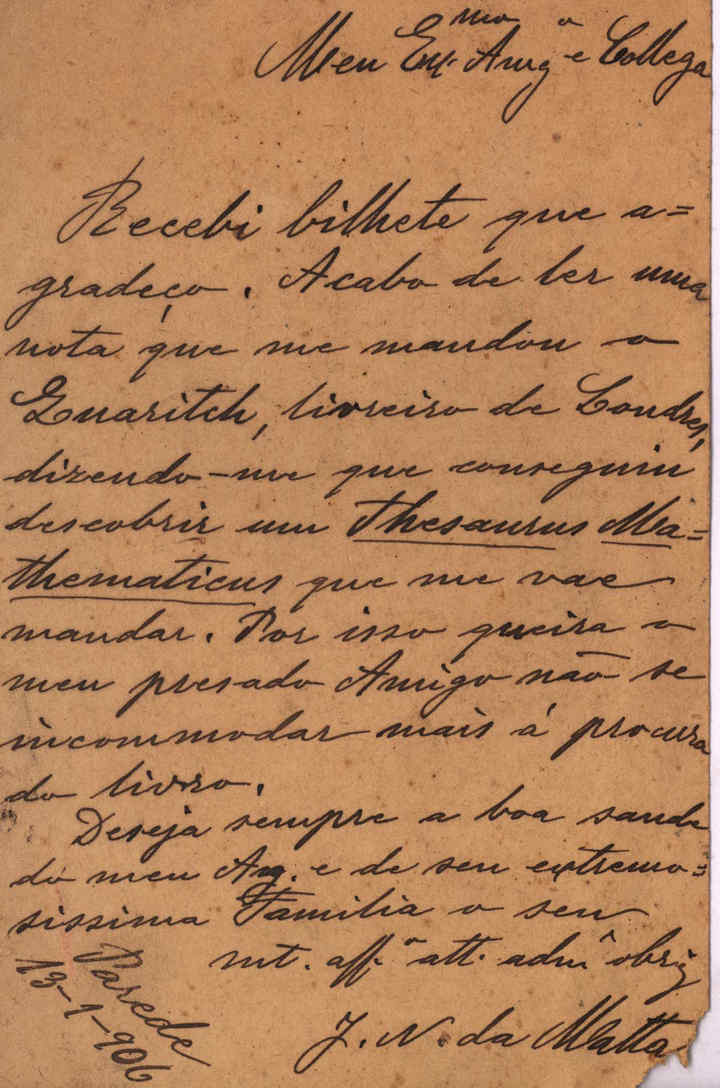 Meu Exmo Amgo e Collega
Recebi bilhete que a=
gradeço. Acabo de ler uma
nota que me mandou o
Quaritch, livreiro de Londres,
dizendo-me que conseguiu
descobrir um Thesaurus Ma=
thematicus que me vae
mandar. Por isso queira o
meu presado Amigo não se
incommodar mais á procura
do livro.
Deseja sempre a boa saude
do meu Amg. e de seu extremo=
sissima Familia o seu
mt. affo att. admr obrig
J. N. da Matta
Parede
13-1-906